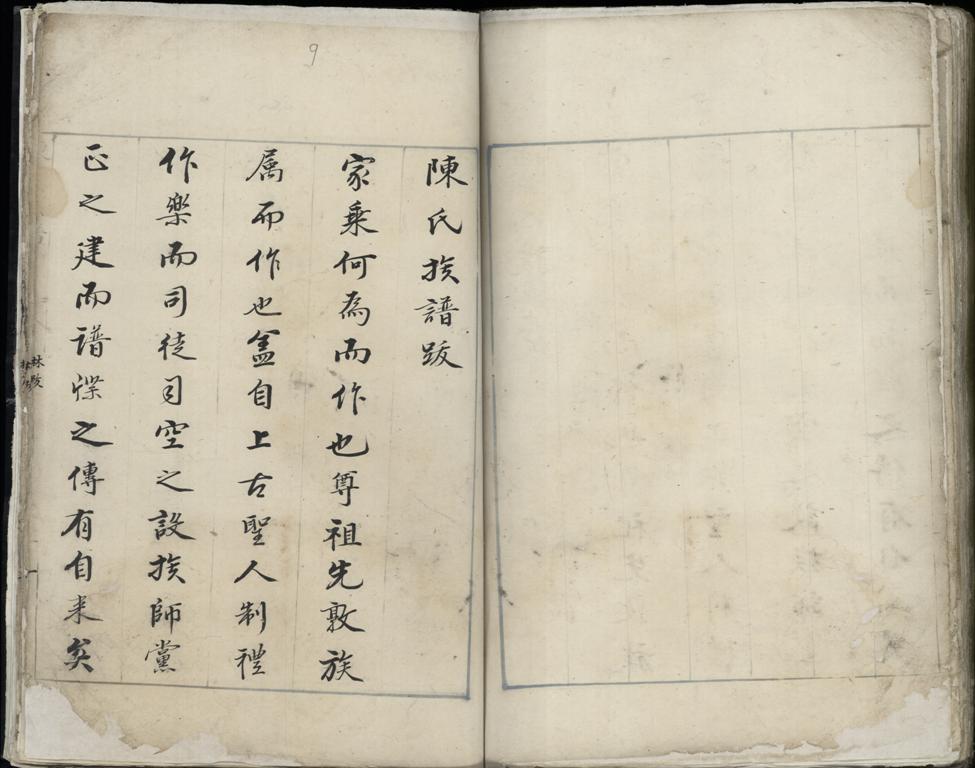 陳氏族譜跋
家乗何為而作也尊祖先敦族
属而作也盖自上古聖人制禮
作楽而司徒司空之設族師黨
正之建而譜牒之傳有自来矣
9